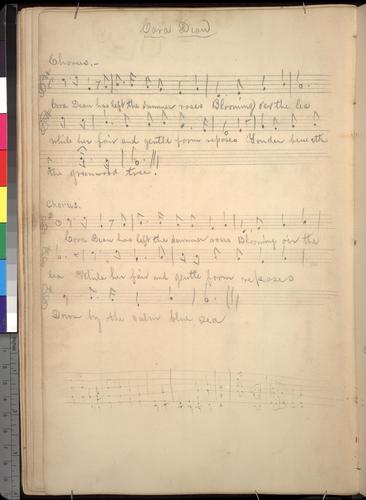 Cora Dean
Chorus.-
Cora Dean has left the summer roses Blooming o'er the lea
While her fair and gentle form reposes Yonder beneath
the greenwood tree.
Chorus.
Cora Dean has left the summer roses Blooming o'er the
lea While her fair and gentle form reposes
Down by the calm blue sea